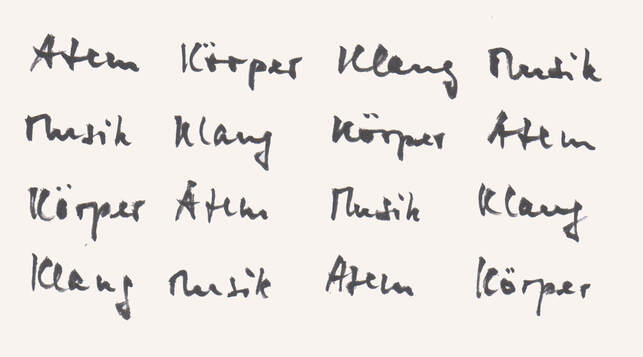 Atem Körper Klang Musik
Musik Klang Körper Atem
Körper Atem Musik Klang
Klang Musik Atem Körper